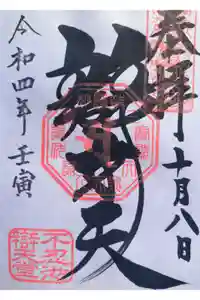 奉拝
十月八日
辯才天
令和四年壬寅
不忍池
辯天堂